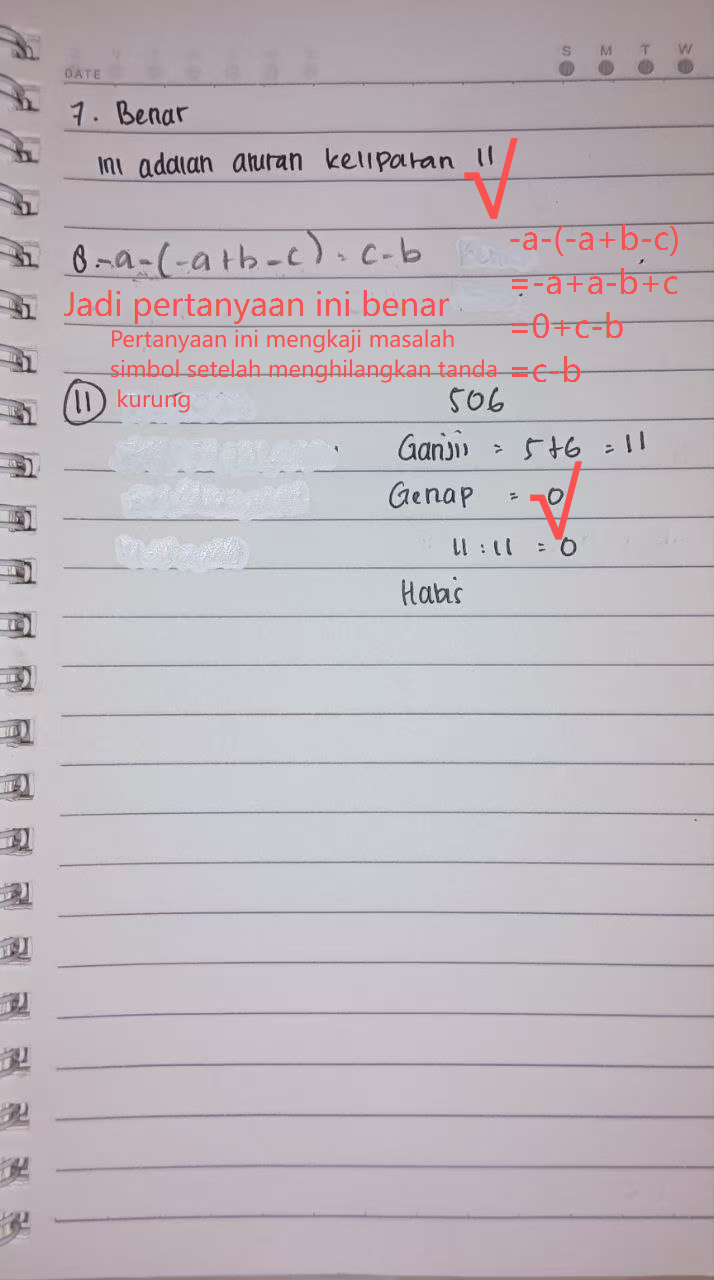 DATE
S M T W
7. Benar
ini adalah aturan kelipatan 11
√
8. -a-(-a+b-c) = c-b
-a-(-a+b-c)
=-a+a-b+c
=0+c-b
=c-b
Jadi pertanyaan ini benar
Pertanyaan ini mengkaji masalah
simbol setelah menghilangkan tanda
kurung
11 506
Ganjil = 5+6 = 11
Genap = 0
√
11:11 = 0
Habis